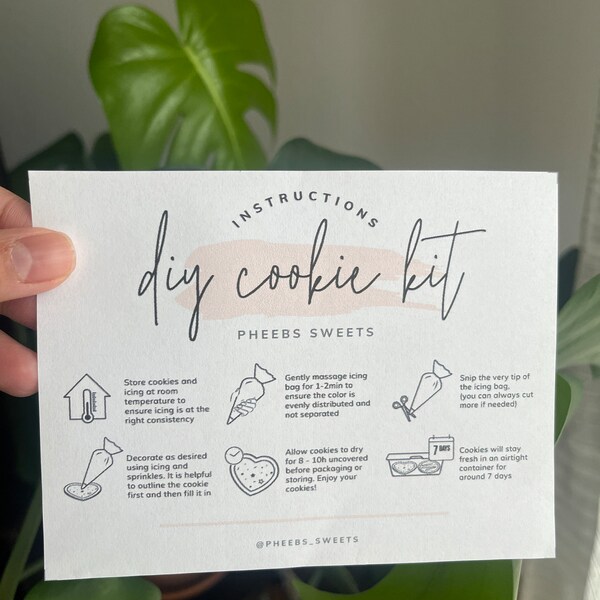 INSTRUCTIONS
diy cookie kit
PHEEBS SWEETS
Store cookies and
icing at room
temperature to
ensure icing is at the
right consistency
Gently massage icing
bag for 1-2min to
ensure the color is
evenly distributed and
not separated
Snip the very tip of
the icing bag,
(you can always cut
more if needed)
Decorate as desired
using icing and
sprinkles. It is helpful
to outline the cookie
first and then fill it in
Allow cookies to dry
for 8 - 10h uncovered
before packaging or
storing. Enjoy your
cookies!
7 DAYS
Cookies will stay
fresh in an airtight
container for
around 7 days
@PHEEBS_SWEETS